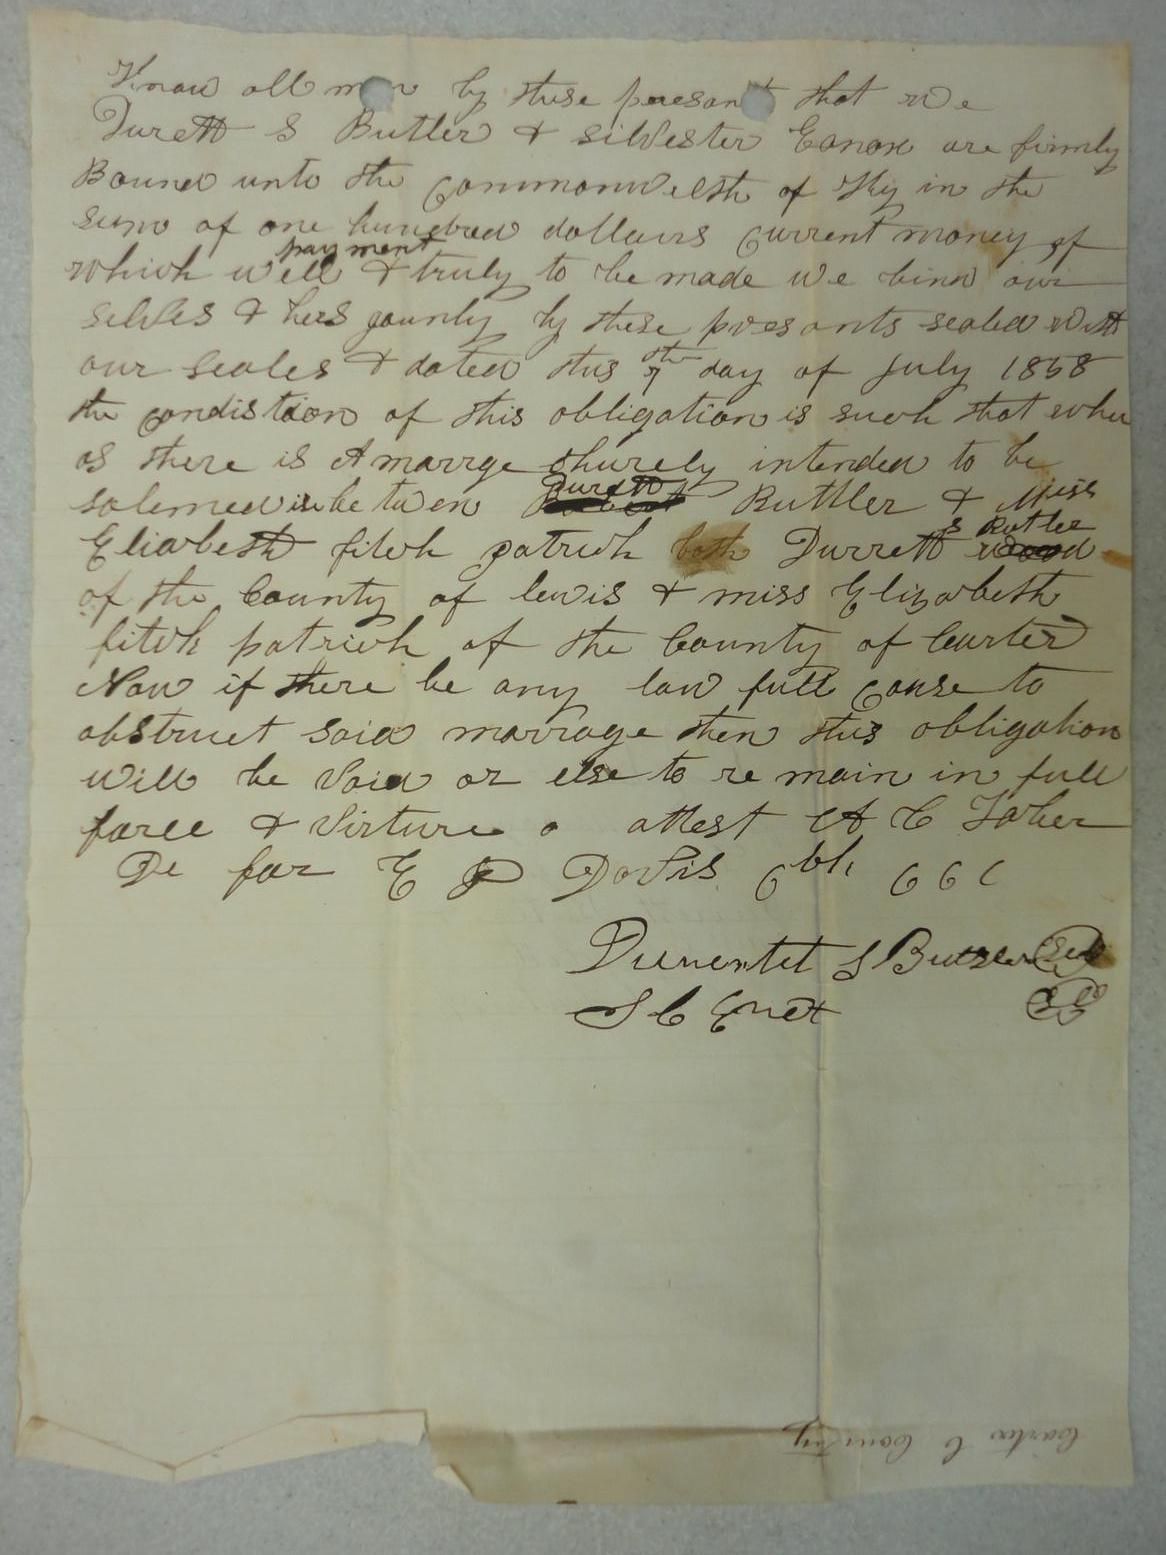 Know all men by these presants that we
Durett S Butler & silvester Eanox are firmly
Bound unto the Commonwelth of Ky in the
sum of one hundred dollaurs current money of
payment
which well & truly to be made we bind our
selves & hers jountly by these presants sealed with
our seales & dated this 7th day of July 1858
the condistion of this obligation is such that wher
as there is A marrge shurely intended to be
Durett
solemed is be twen Buttler & Miss
S Butler
Eliabesth fitch patrick both Durrett
of the County of lewis & miss Elizabeth
fitch patrick of the County of Carter
Now if there be any law full cause to
obstruct said marrage then this obligation
will be void or else to re main in full
force & virture attest A C
De for E P Davis Clk C C C
S Butler Seal
S C Enox
Carter C County